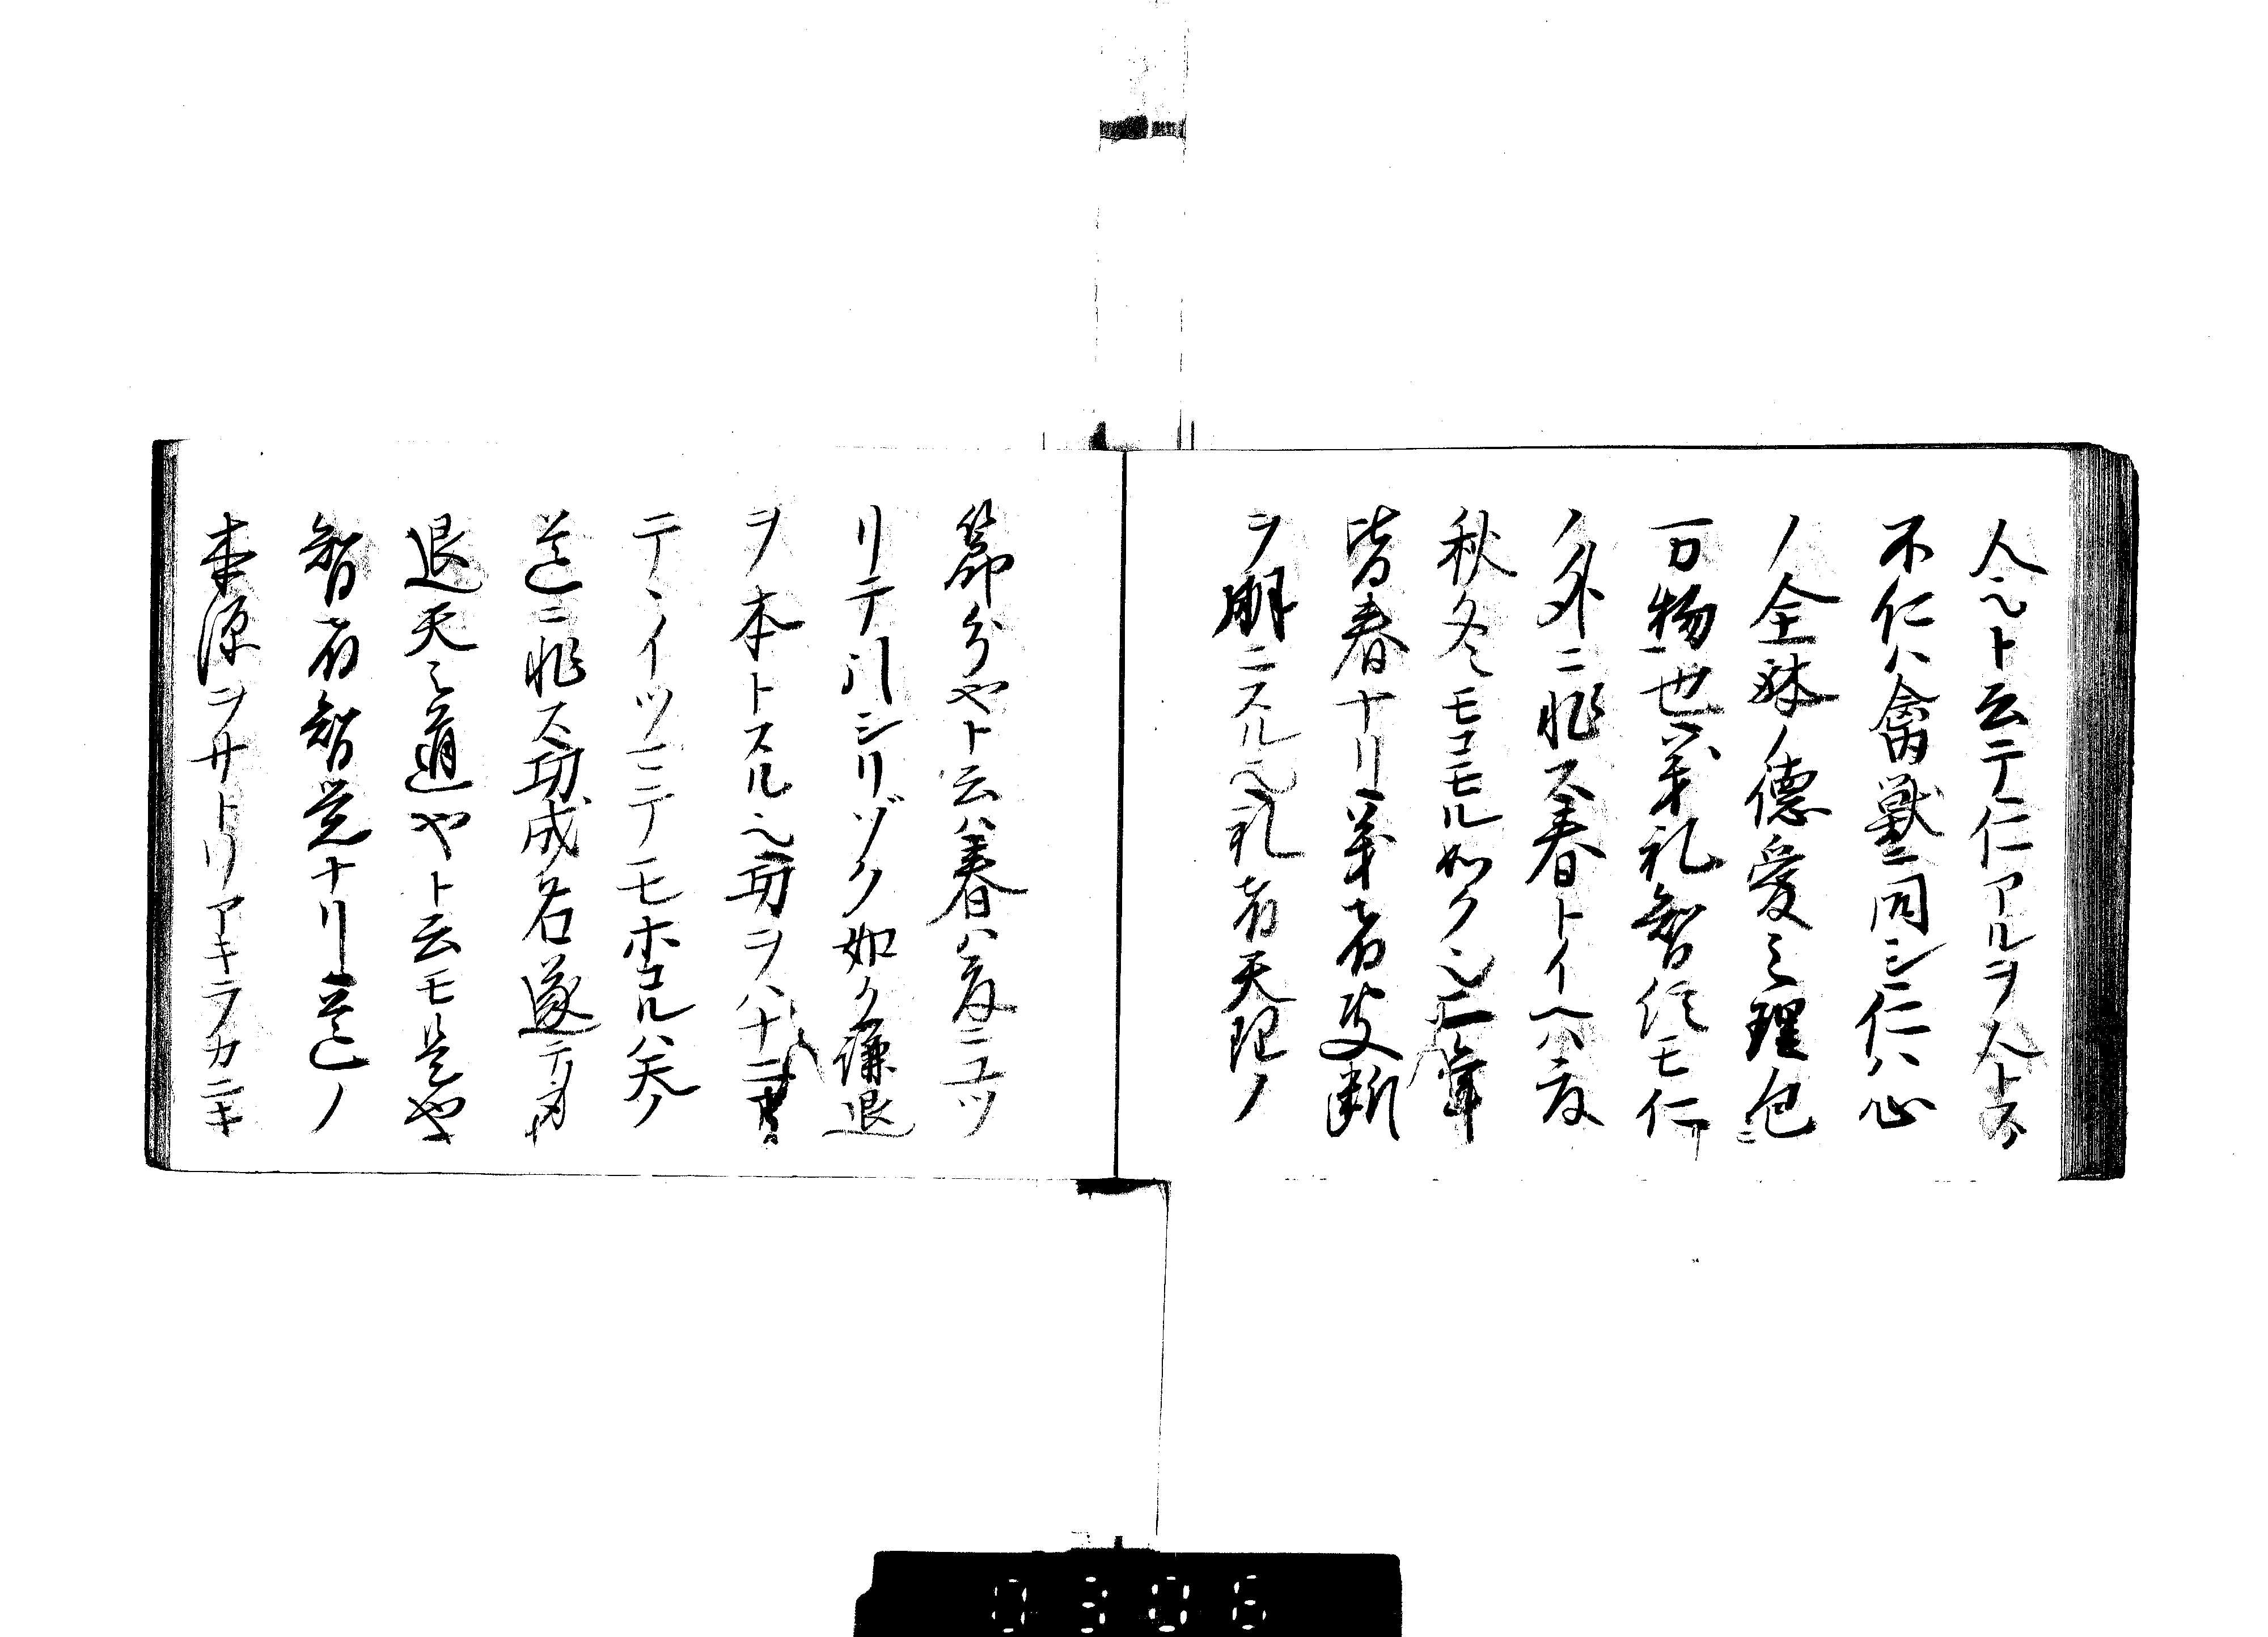 人也ト云テ仁アルヲ人トス
不仁ハ禽獣ニ同シ仁ハ心
ノ全躰ノ徳愛之理包
万物也義礼智信モ仁
ノ外ニ非ス春トイヘハ夏
秋冬モコモル如ク也仁
皆春ナリ義者決断
ヲ明ニスル也礼者天理ノ
節分也ト云ハ春ハ夏ニユツ
リテ引シリゾク如ク謙退
ヲ本トスル也功ヲハナニ
テ イツニテモホコルハ天ノ
道ニ非ス功成名遂テ身
退天之道也ト云モ是也
智者智覚ナリ道ノ
本源ヲサトリアキラカニキ
0306